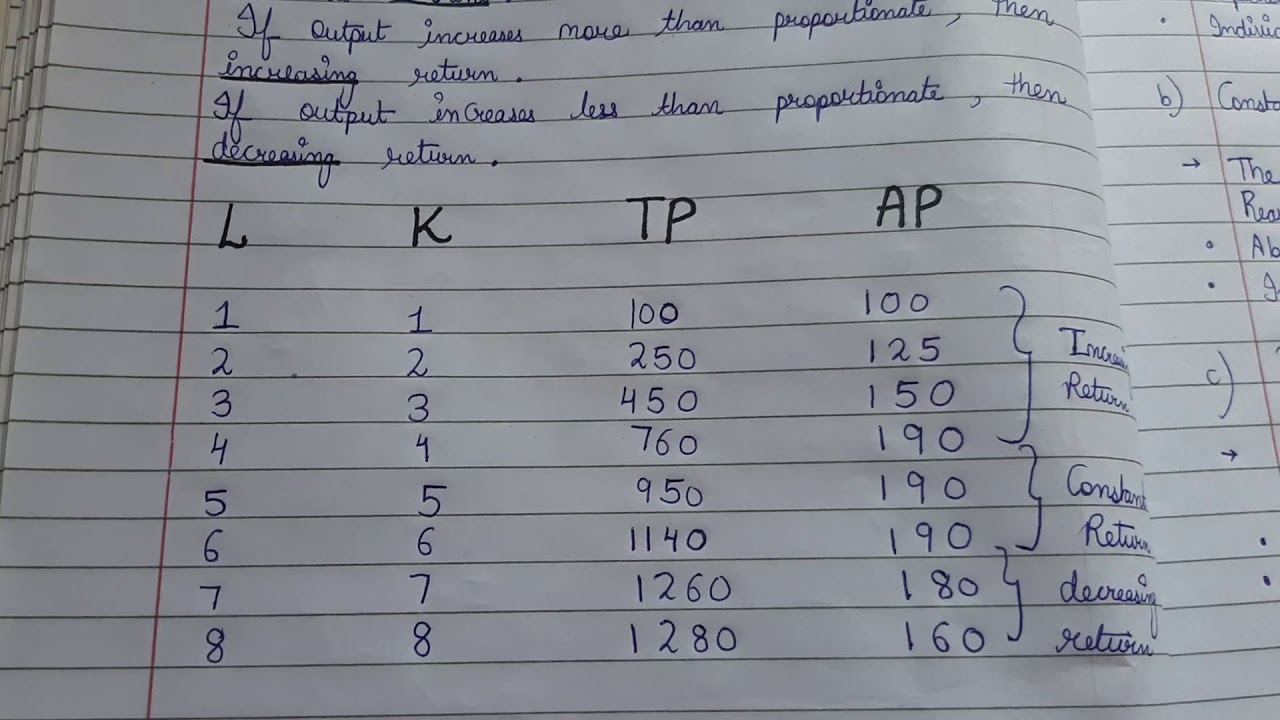 If output increases more than proportionate, then
increasing return.
If output increases less than proportionate, then
decreasing return.
L K TP AP
1 1 100 100
2 2 250 125
3 3 450 150
4 4 760 190
5 5 950 190
6 6 1140 190
7 7 1260 180
8 8 1280 160
Increasi
Return
Constant
Return
decreasing
return
b)
→ The
• Ab
c)
→